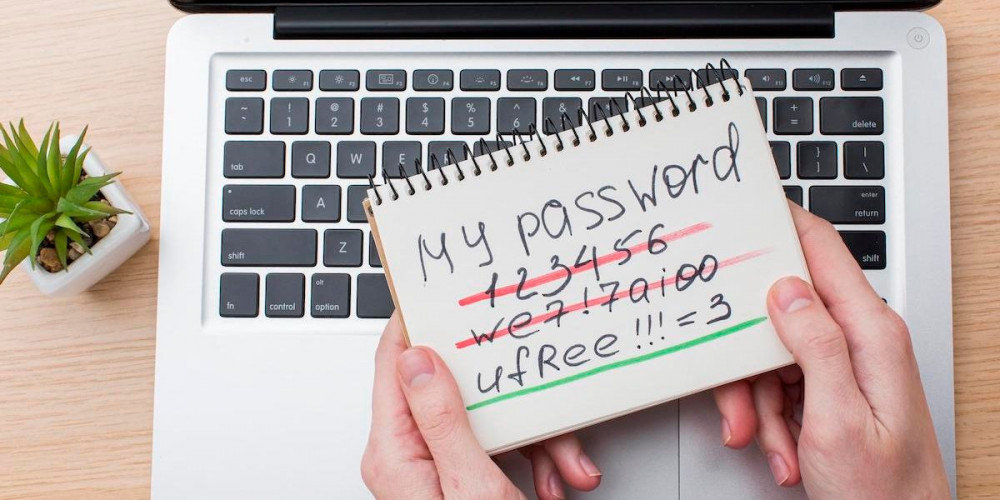 My password
123456
we7!7aioo
ufRee!!!=3
esc
~ ! 1 @ 2 # 3 $ 4 % 5 ^ 6 & + = delete
tab Q W E } ] | \
caps lock A enter return
shift Z shift
fn control alt option